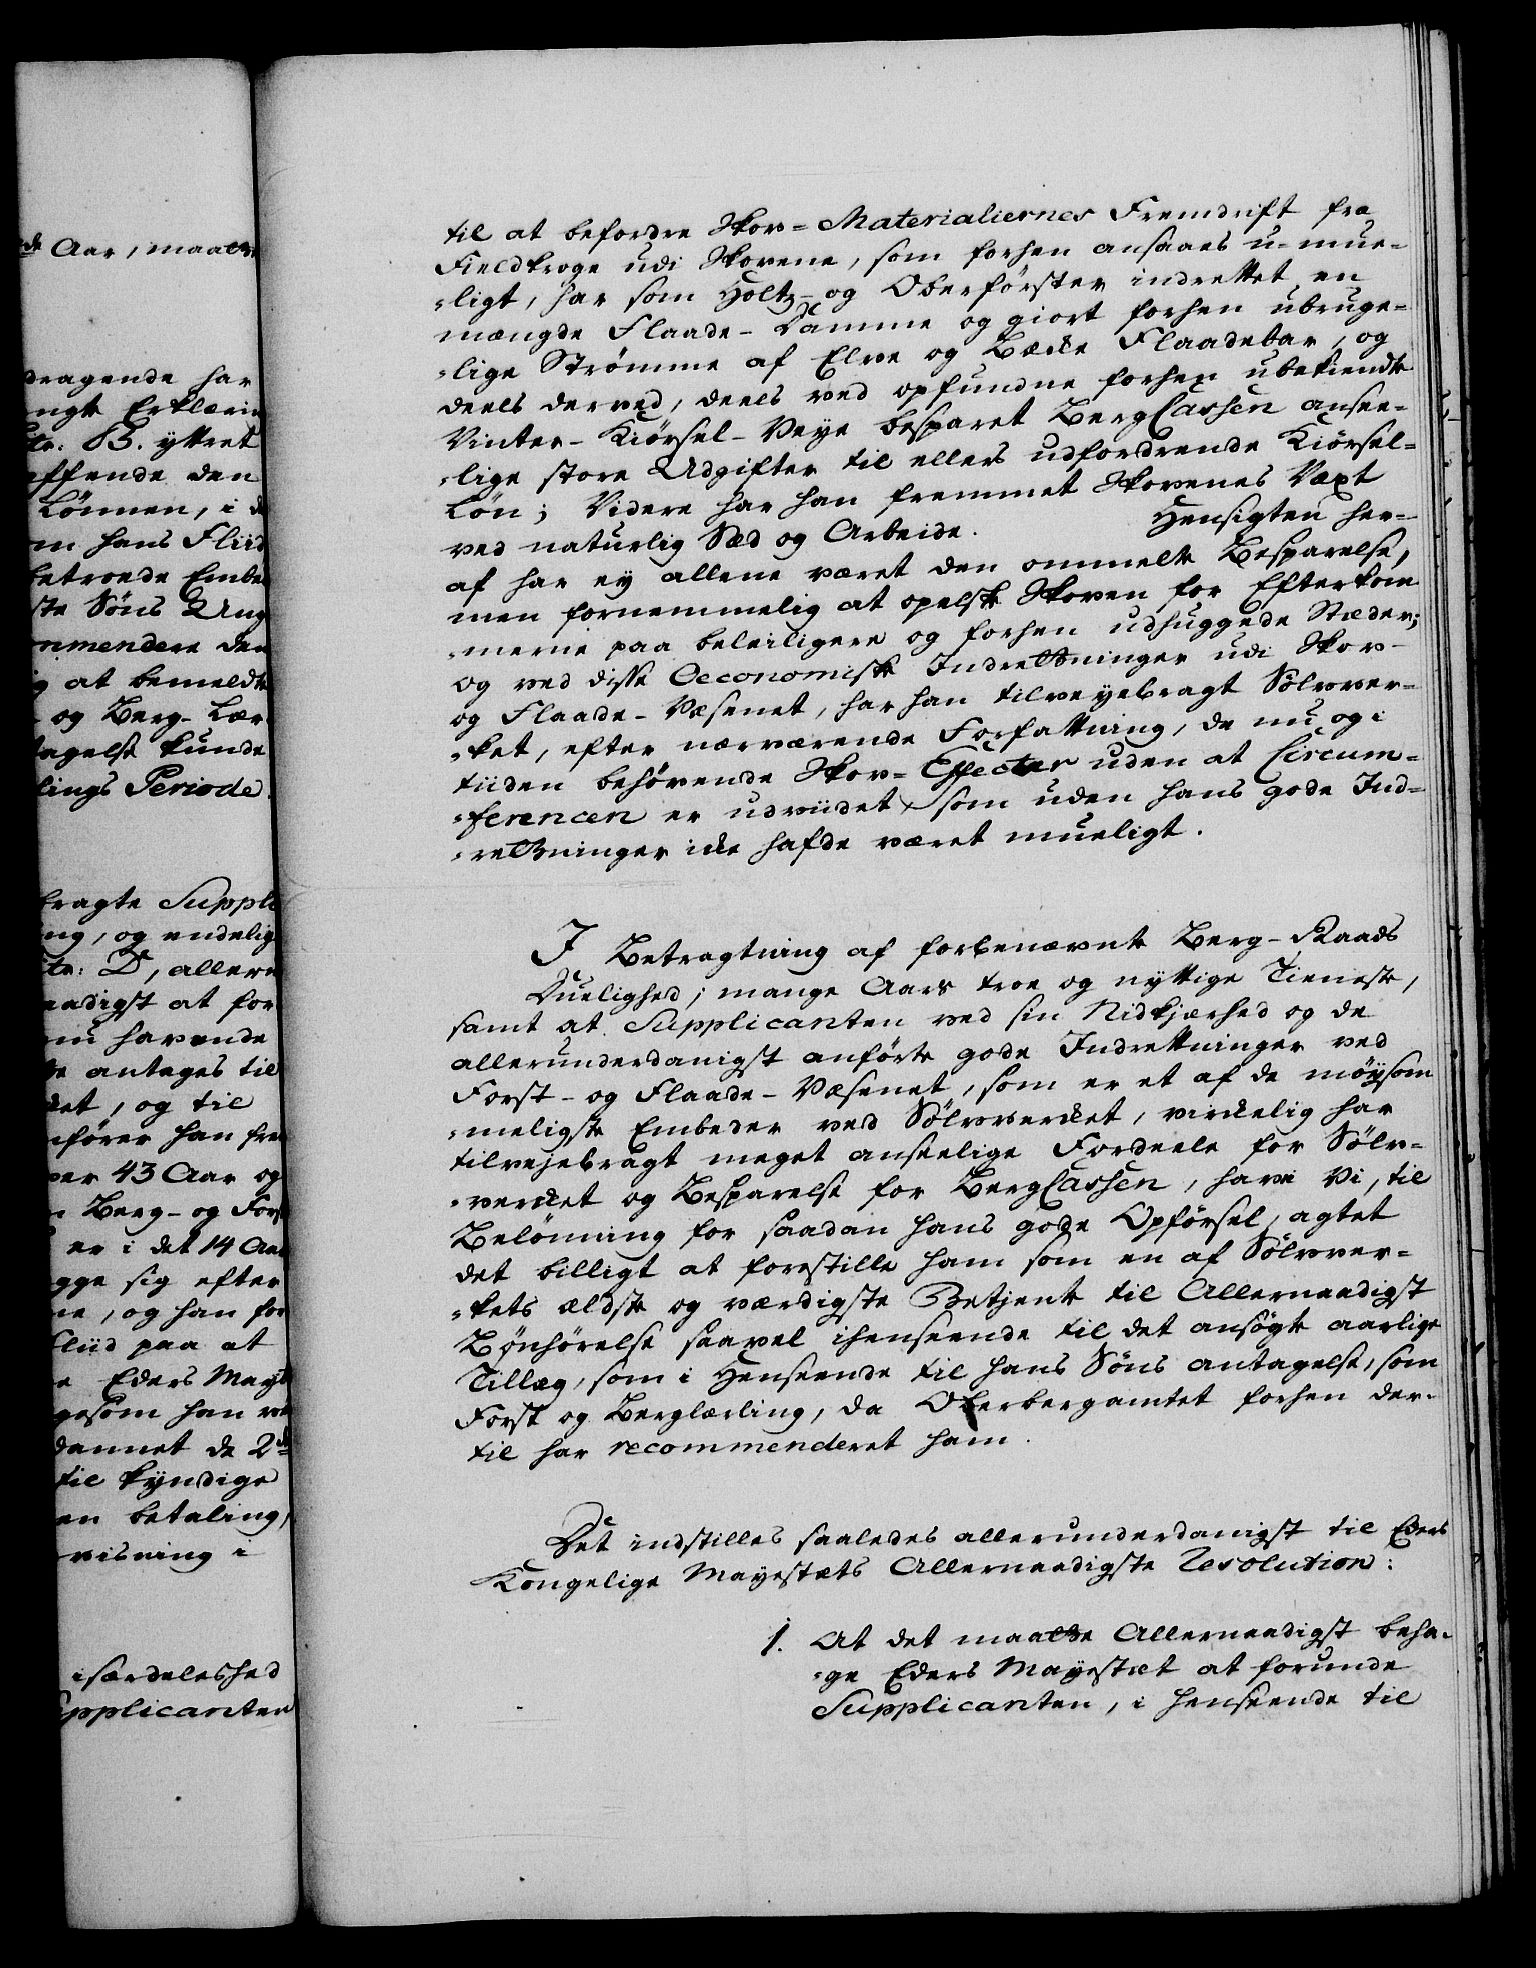 de Aar, maatte
dragende har
ngte Erklærin
Ltr: B. yttret
effende den
Lönnen, i de
m hans Fliid
betroede Embe
ste Söns Ung
ommendere den
ig at bemeldte
- og Berg-Lær
tagelse kunde
lings Periode.
bragte Suppli
ng, og endelig
Ltr: D, allern
naadigst at for
nu havende
te antages til
ket, og til
nfører han fre
ver 43 Aar og
Berg- og Fors
er i det 14 Aar
gge sig efter
ne, og han for
Fliid paa at
e Eders Mayst
gesom han ved
dannet de 2de
til kyndige
en betaling,
visning i
isærdeleshed
upplicanten
til at befordre Skov-Materialiernes Fremdrift fra
Fieldkroge udi Skovene, som forhen ansaaes u-mue-
-ligt, har som Holtz- og Oberförster indrettet en
mængde Flaade-Damme og giort forhen ubruge-
-lige Strömme af Elve og Bække Flaadebar, og
deels derved, deels ved opfundne forhen ubekiendte
Vinter-Kiörsel-Veye besparet BergCassen ansee-
-lige store Udgifter til ellers udfordrende Kiörsel-
Lön; Videre har han fremmet Skovenes Vext
ved naturlig Sæd og Arbeide. Hensigten her-
af har ey allene været den ommelte Besparelse,
men fornemmelig at opelske Skoven for Efterkom-
-merne paa beleiligere og forhen udhuggede Stæder;
og ved disse Oeconomiske Indretninger udi Skov-
og Flaade-Væsenet, har han tilveyebragt Sölvver-
-ket, efter nærværende Forfattning, de nu og i
tiiden behövende Skov-Effecter uden at Circum-
-ferencen er udviidet, som uden hans gode Ind-
-retninger ikke hafde været mueligt.
I Betragtning af forbenævnte Berg-Raads
Duelighed, mange Aars troe og nyttige Tieneste,
samt at Supplicanten ved sin Nidkjærhed og de
allerunderdanigst anförte gode Indrettninger ved
Forst- og Flaade-Væsenet, som er et af de möysom
-meligste Embeder ved Sölvverket, virkelig har
tilvejebragt meget anseelige Fordeele for Sölv-
-verket og Besparelse for BergCassen, have Vi, til
Belönning for saadan hans gode Opförsel, agtet
det billigt at forestille ham som en af Sölvver-
-kets ældste og værdigste Betjente til Allernaadigst
Bönhörelse saavel ihenseende til det ansögte aarlige
Tillæg, som i Henseende til hans Söns antagelse, som
Forst og Berglærling, da Oberbergamtet forhen der-
til har recommenderet ham.
Det indstilles saaledes allerunderdanigst til Eders
Kongelige Mayestæts Allernaadigste Resolution:
1. At det maatte Allernaadigst beha-
-ge Eders Mayestæt at forunde
Supplicanten, i henseende til